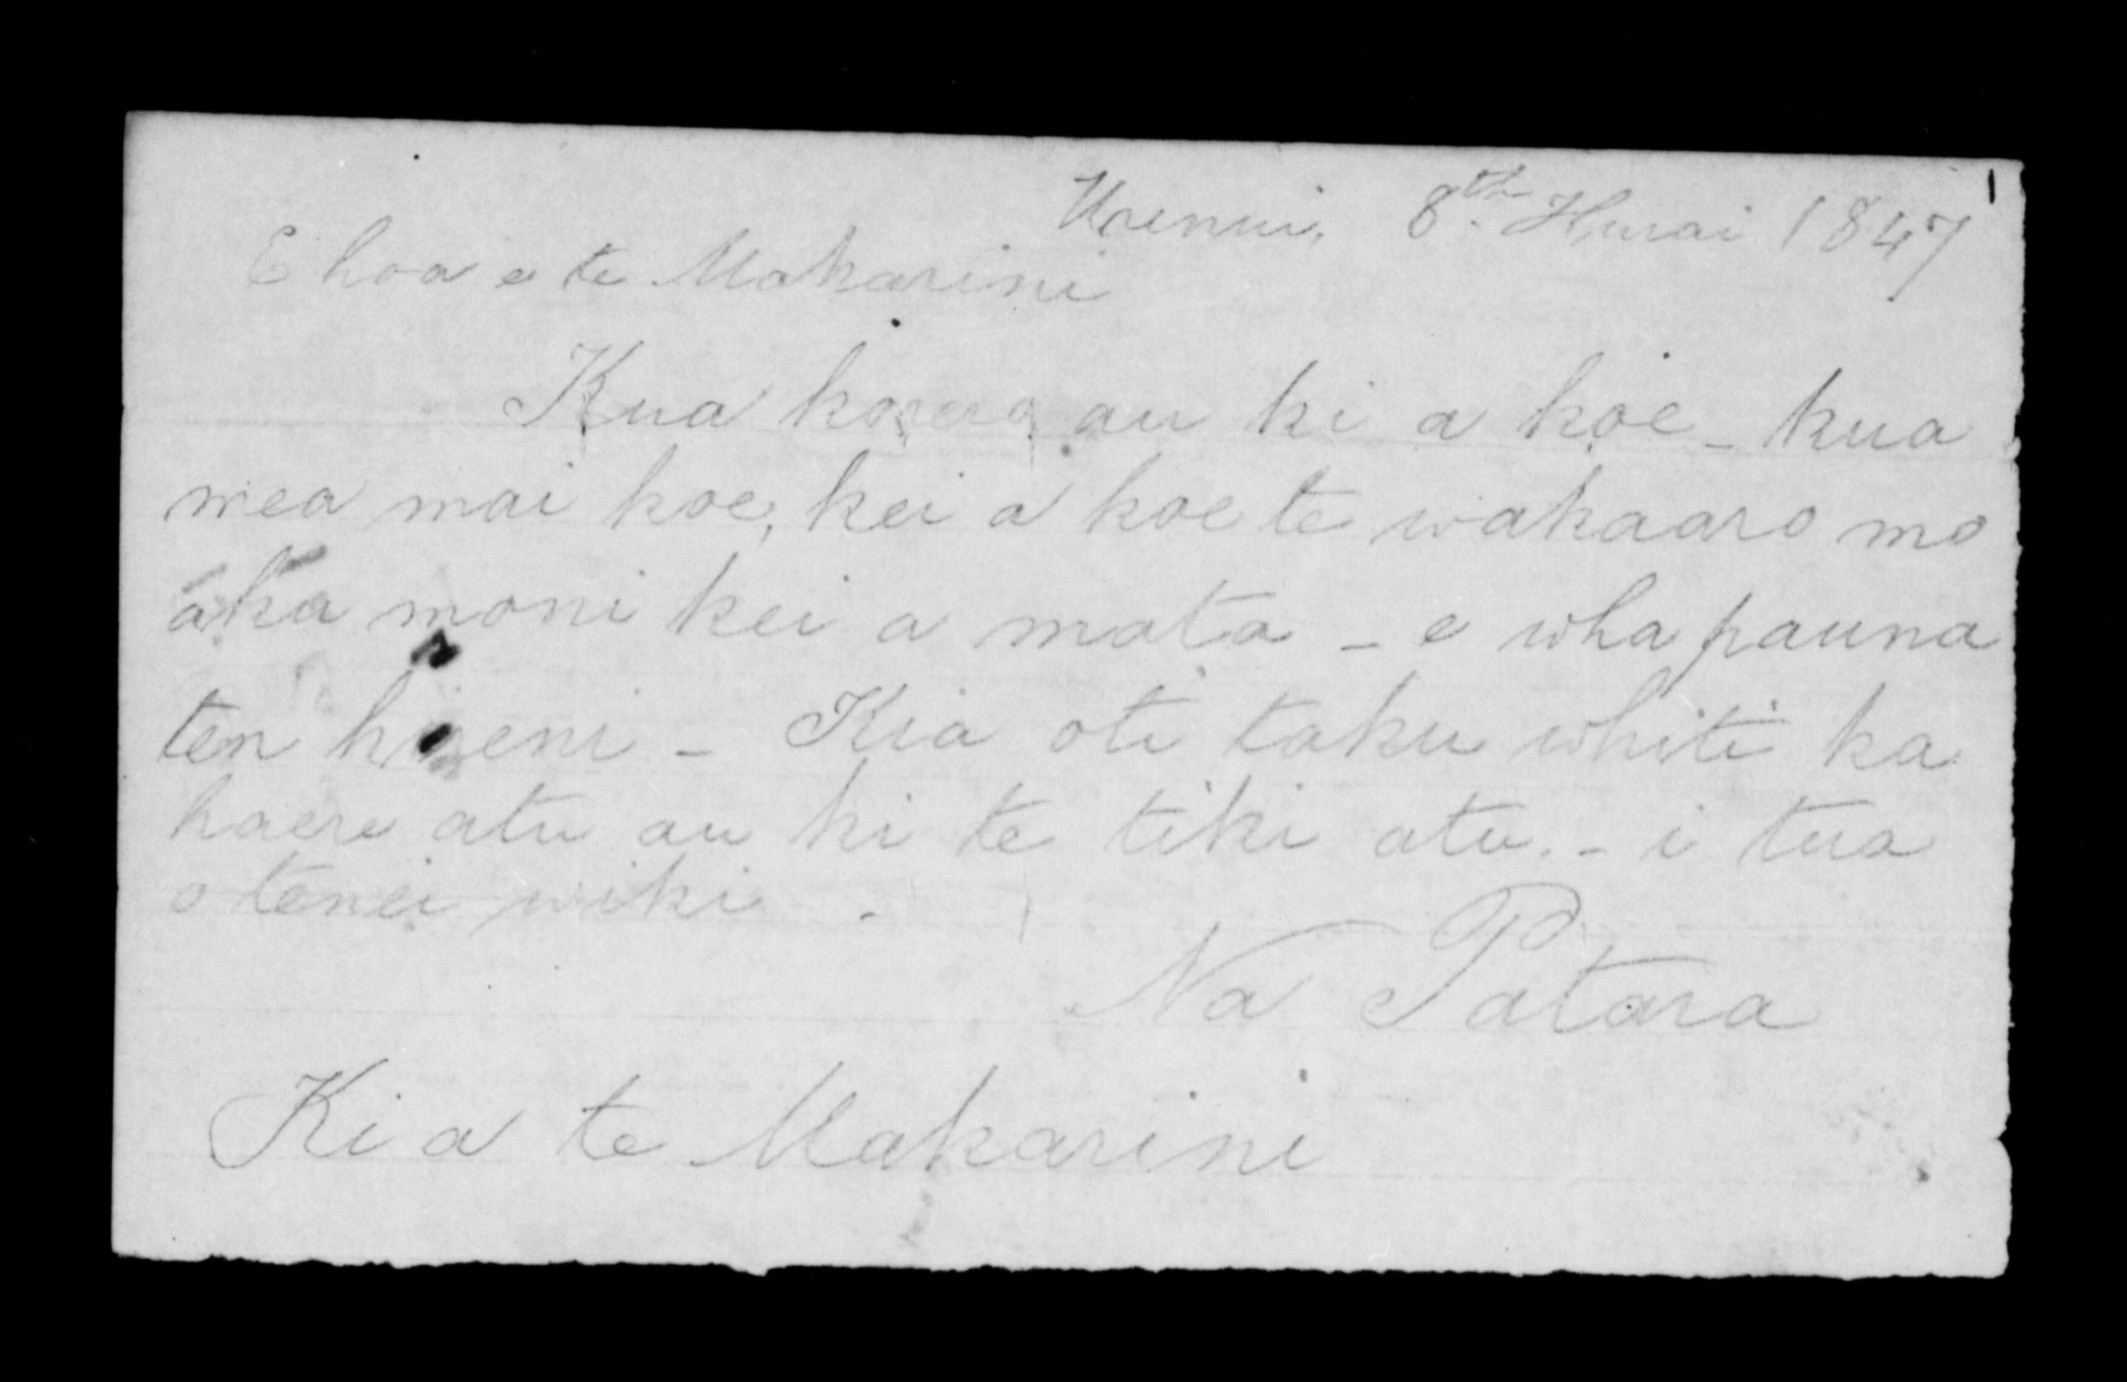 1
Urenui, 8th Hurai 1847
E hoa e te Makarini
Kua korero au ki a koe - kua
mea mai koe, kei a koe te wakaaro mo
aku moni kei a mata - e wha pauna
ten hereni - Kia oti taku whiti ka
haere atu au ki te tiki atu. - i tua
o tenei wiki.
Na Patara
Ki a te Makarini